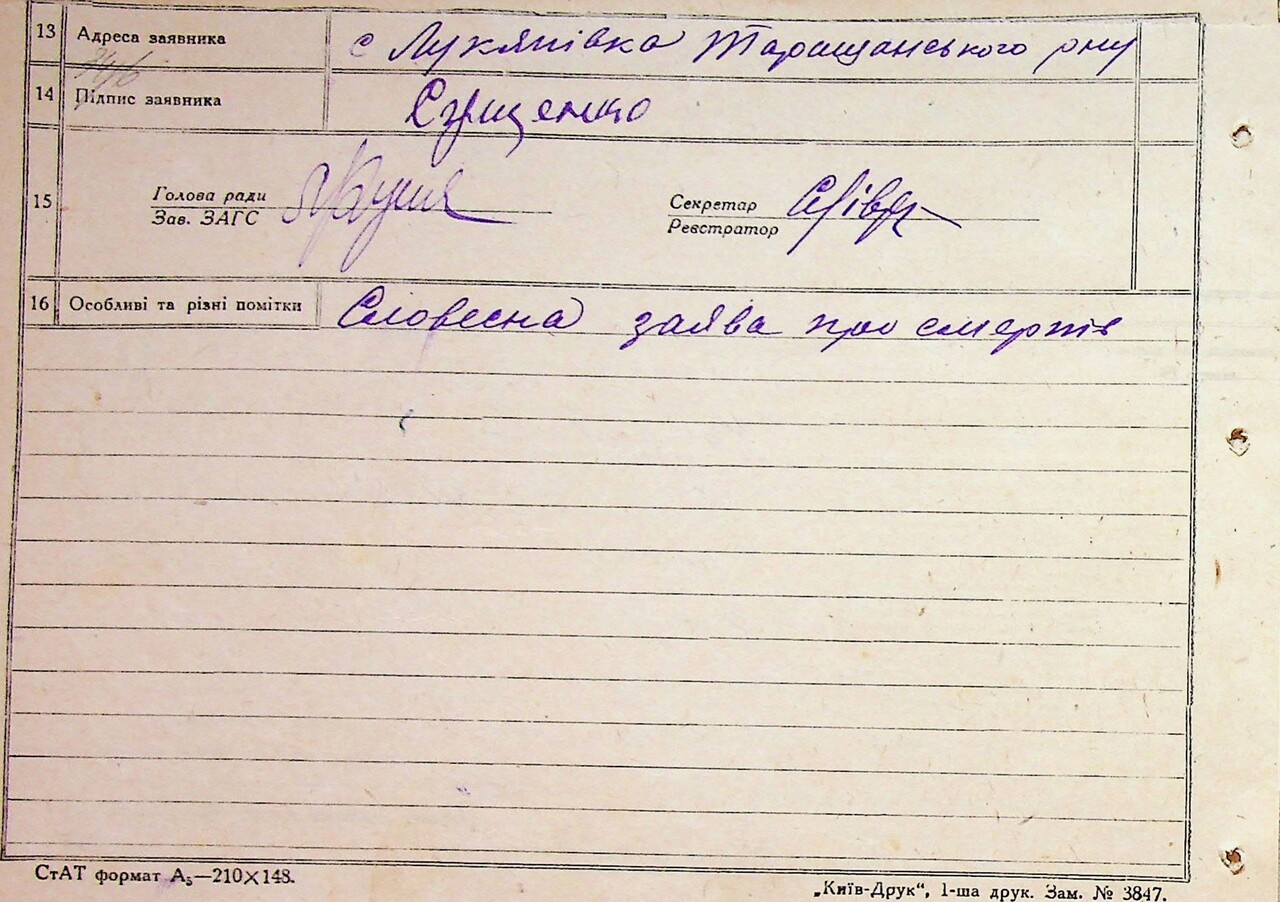 13 Адреса заявника с Лукянівка Таращанського рну
14 Підпис заявника
15 Голова ради Секретар
Зав. ЗАГС Реєстратор
16 Особливі та різні помітки Словесна заява про смерть
СтАТ формат А₅—210×148.
„Київ-Друк“, 1-ша друк. Зам. № 3847.